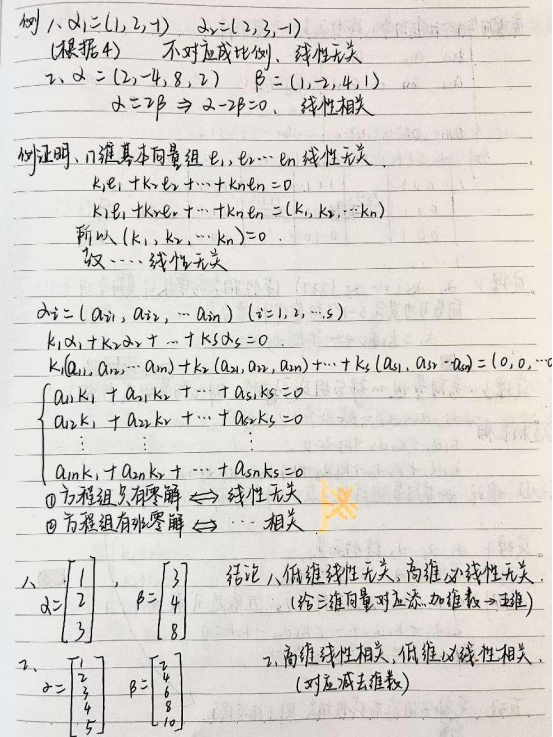 例 1、α₁=(1,2,-1) α₂=(2,3,-1)
(根据4) 不对应成比例、线性无关
2、α=(2,-4,8,2) β=(1,-2,4,1)
α=2β ⇒ α-2β=0、线性相关
例证明、n维基本向量组 e₁,e₂…en 线性无关
k₁e₁+k₂e₂+…+knen=0
k₁e₁+k₂e₂+…+knen=(k₁,k₂,…kn)
所以(k₁,k₂,…kn)=0
故……线性无关
αi=(ai₁,ai₂,…ain) (i=1,2,…,s)
k₁α₁+k₂α₂+…+ksαs=0
k₁(a₁₁,a₁₂,…a₁n)+k₂(a₂₁,a₂₂,a₂n)+…+ks(as₁,as₂…asn)=(0,0,…0
a₁₁k₁+a₂₁k₂+…+as₁ks=0
a₁₂k₁+a₂₂k₂+…+as₂ks=0
⋮ ⋮ ⋮
a₁nk₁+a₂nk₂+…+asnks=0
①方程组只有零解⇔线性无关
②方程组有非零解⇔…相关
1、α=[1 2 3], β=[3 4 8] 结论 1、低维线性无关,高维必线性无关.
(给三维向量对应添加维数→五维)
2、α=[1 2 3 4 5] β=[2 4 6 8 10] 2、高维线性相关,低维必线性相关.
(对应减去维数)